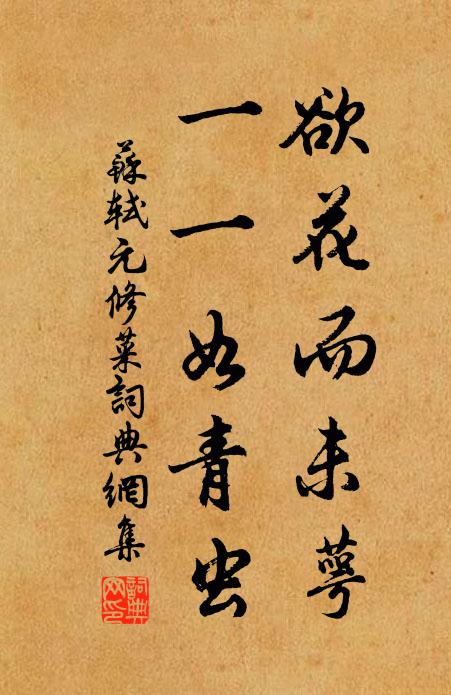 欲花而未萼
一一如青虫
蘇軾元修菜詞典網集
詞典
网印